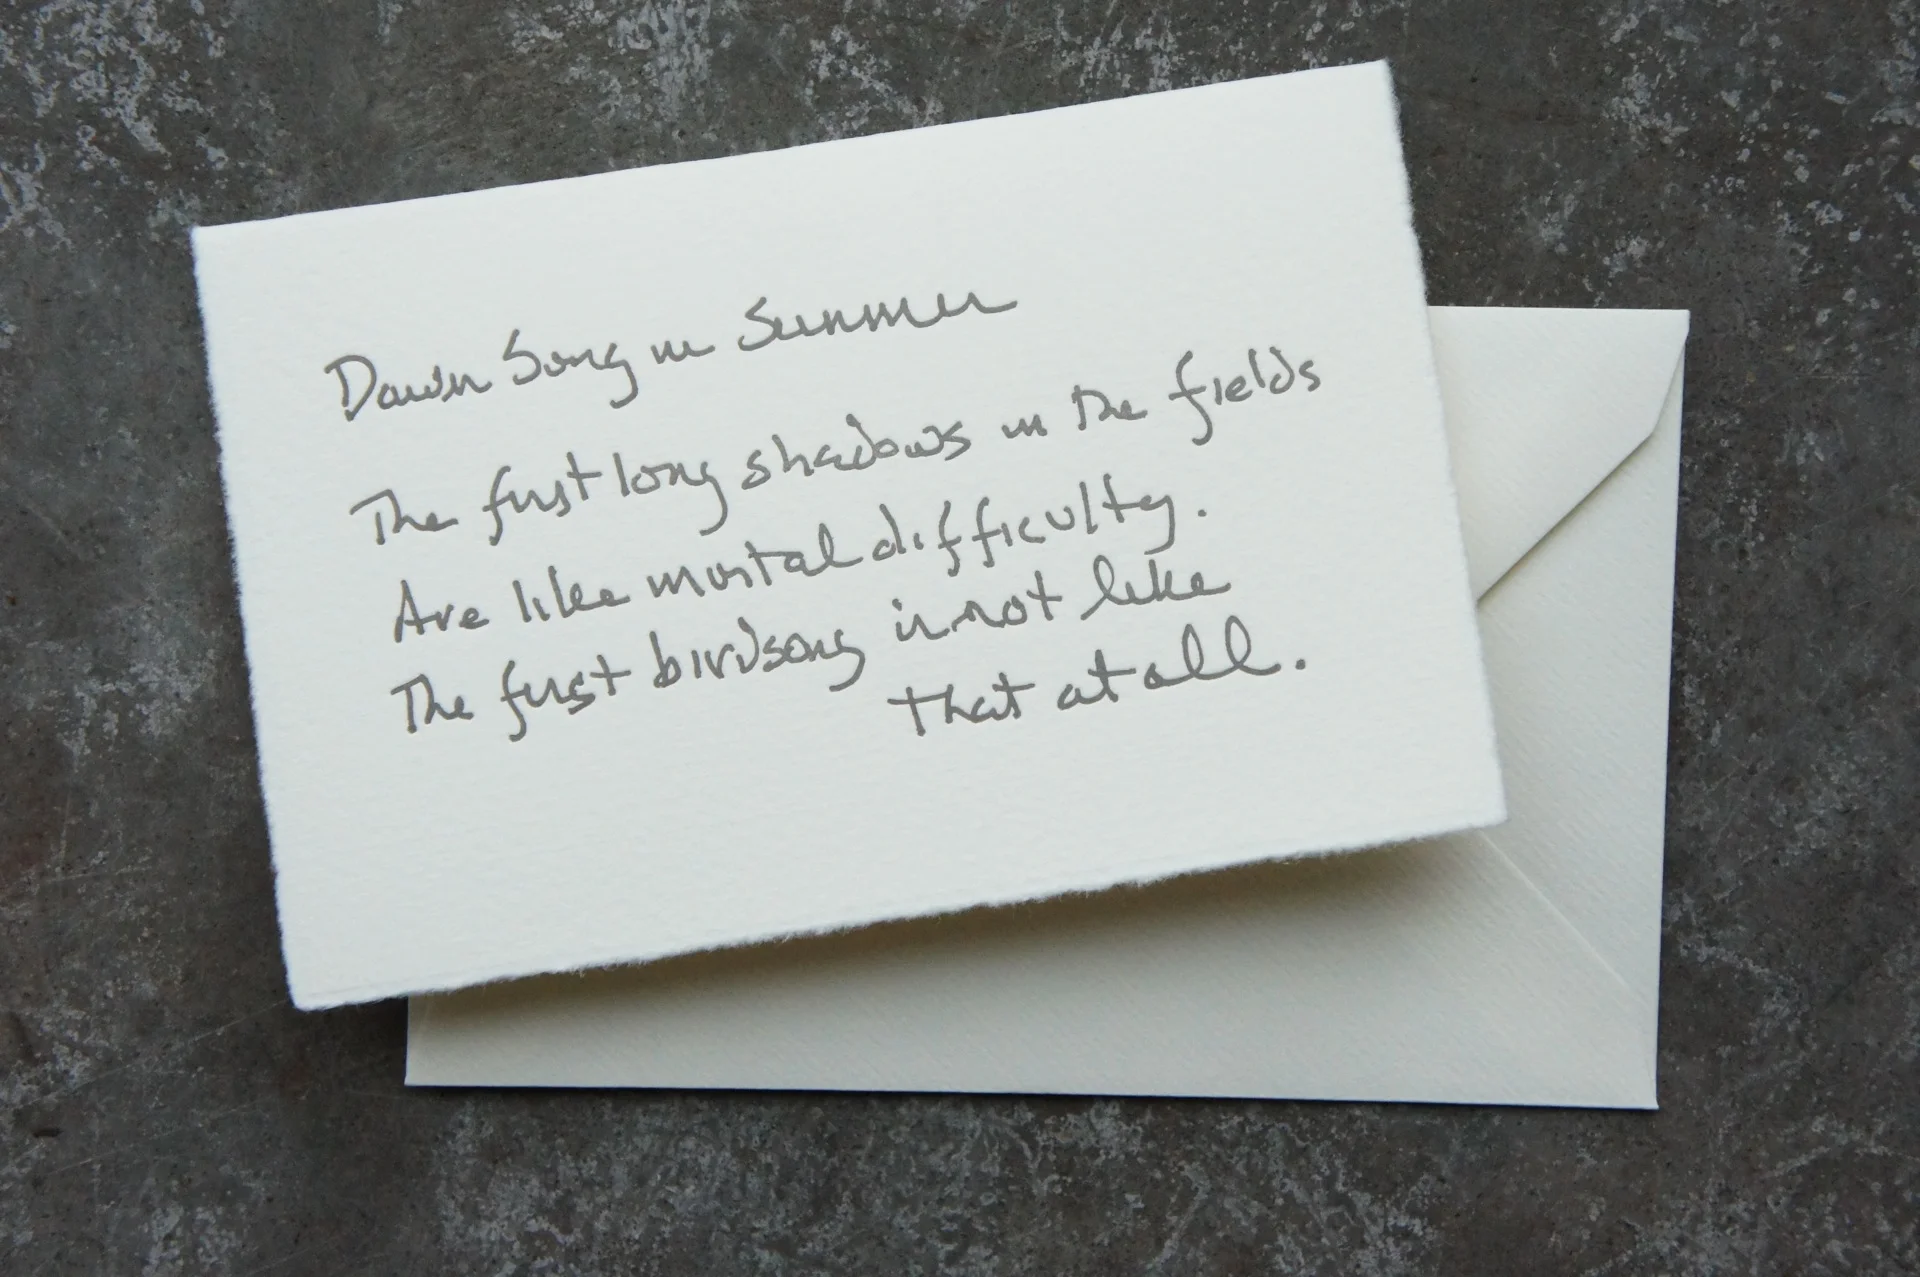 Dawn Song in Summer
The first long shadows in the fields
Are like mortal difficulty.
The first birdsong is not like
that at all.